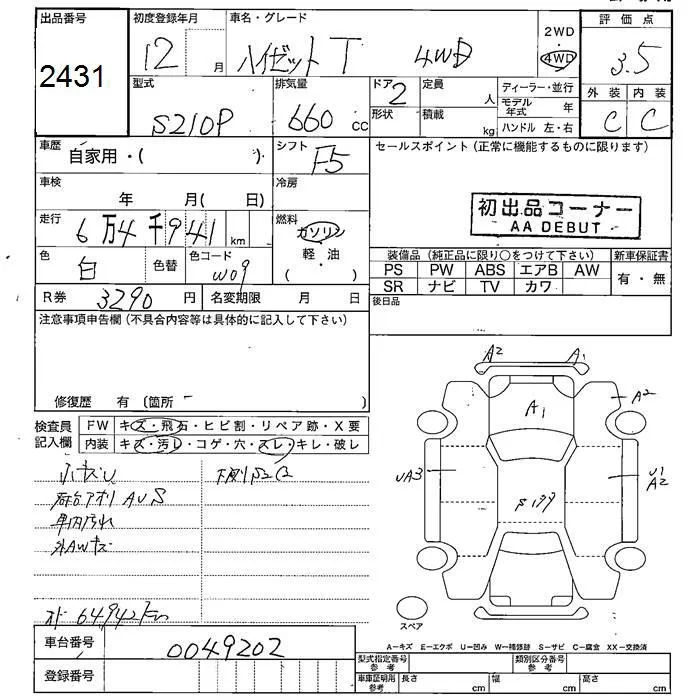 出品番号
2431
初度登録年月
12 月
車名・グレード
ハイゼットT 4WD
2WD
4WD
評価点
3.5
外装 内装
C C
型式
S210P
排気量
660 cc
ドア 2
形状
定員 人
積載 kg
ディーラー・並行
モデル年式 年
ハンドル 左・右
車歴
自家用・( )
シフト
F5
車検
年 月( 日)
冷房
走行
6万4千941 km
燃料
ガソリン
軽・油
( )
色
白
色替
色コード
W09
R券
3290 円
名変期限 月 日
セールスポイント(正常に機能するものに限ります)
初出品コーナー
AA DEBUT
装備品(純正品に限り○をつけて下さい)
新車保証書
PS PW ABS エアB AW
SR ナビ TV カワ
有・無
後日品
注意事項申告欄(不具合内容等は具体的に記入して下さい)
修復歴 有(箇所 )
検査員記入欄
FW キズ・飛石・ヒビ割・リペア跡・X要
内装 キズ・汚レ・コゲ・穴・スレ・キレ・破レ
小キズU
荷台アオリAUS
車内汚れ
外AWキズ
下廻りS2C
オド 64,942km
A2
A1
A2
A1
UA3
U1
A2
スペア
A=キズ E=エクボ U=凹み W=補修跡 S=サビ C=腐食 XX=交換済
車台番号
0049202
登録番号
型式指定番号 参考
類別区分番号 参考
車庫証明用 参考
長さ cm
幅 cm
高さ cm